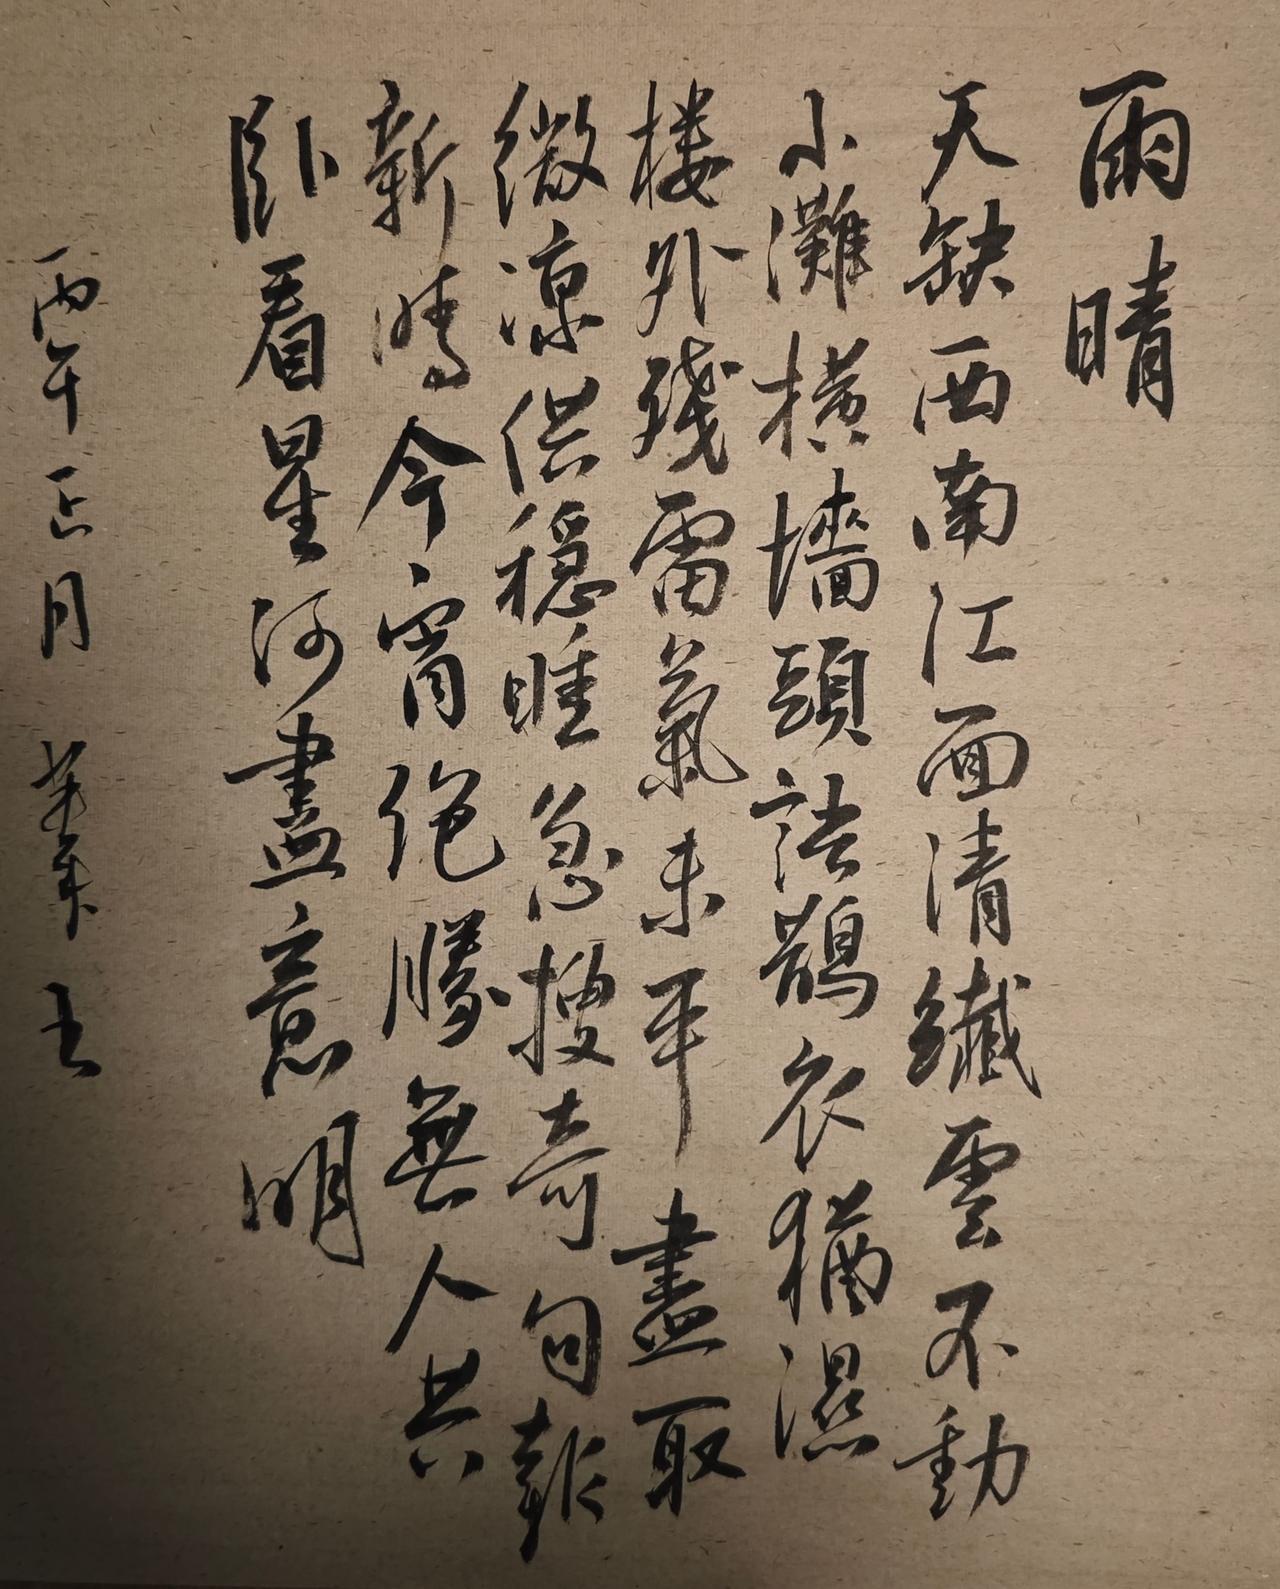 雨晴
天缺西南江面清纖雲不動
小灘橫墻頭語鵲衣猶濕
楼外殘雷氣未平盡取
微凉供穩睡急搜奇句報
新晴今宵絕勝無人共
卧看星河盡意明
丙午正月